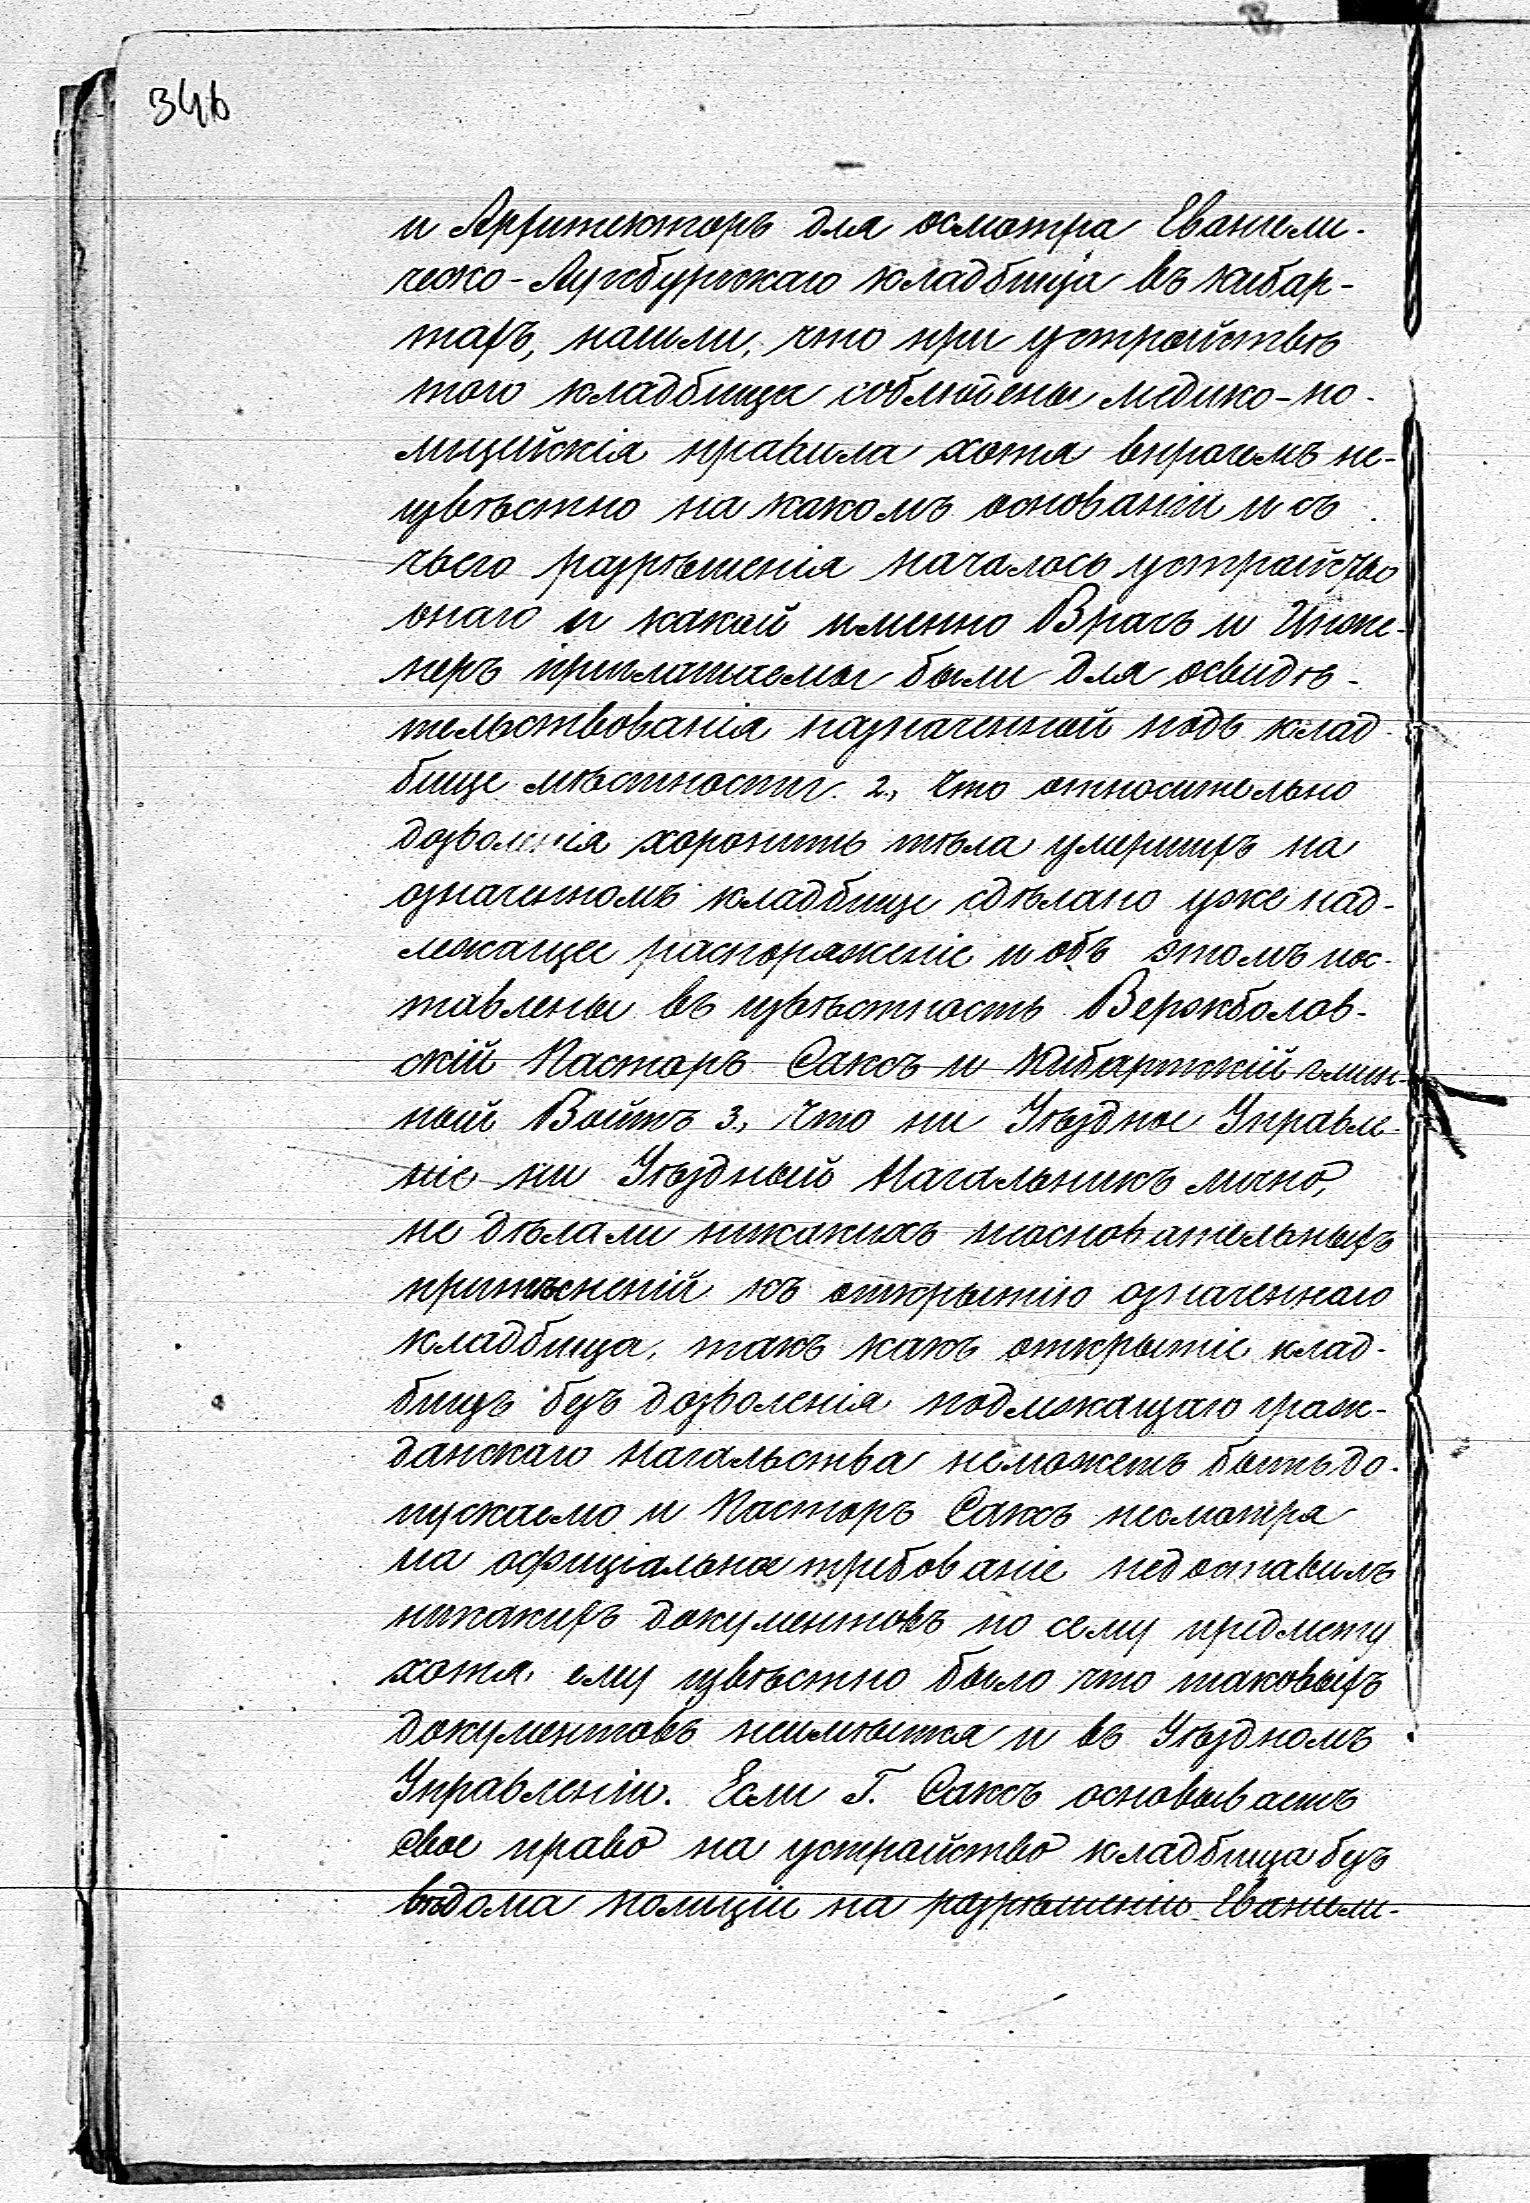 346
и Архитекторъ для осмотра Евангели-
ческо-Аугсбургскаго кладбища въ Кибар-
тахъ, нашли, что при устройствѣ
того кладбища соблюдены медико-по-
лицейскія правила хотя впрочемъ не-
извѣстно на какомъ основаніи и съ
чьего разрѣшенія началось устройство
онаго и какой именно Врачъ и Инже-
неръ приглашаемы были для освидѣ-
тельствованія назначенной подъ клад-
бище мѣстности. 2., Что относительно
дозволенія хоронить тѣла умершихъ на
означенномъ кладбищѣ сдѣлано уже над-
лежащее распоряженіе и объ этомъ пос-
тавлены въ извѣстность Вержболов-
скій Пасторъ Саксъ и Кибартскій гмин-
ный Войтъ 3., Что ни Уѣздное Управле-
ніе ни Уѣздный Начальникъ лично,
не дѣлали никакихъ неосновательныхъ
притѣсненій къ открытію означеннаго
кладбища, такъ какъ открытіе клад-
бищъ безъ дозволенія подлежащаго граж-
данскаго Начальства неможетъ быть до-
пускаемо и Пасторъ Саксъ несмотря
на официальное требованіе недоставилъ
никакихъ документовъ по сему предмету
хотя, ему извѣстно было что таковыхъ
документовъ неимѣется и въ Уѣздномъ
Управленіи. Если Г. Саксъ основываетъ
свое право на устройство кладбища безъ
вѣдома полиціи на разрѣшеніи Евангели-